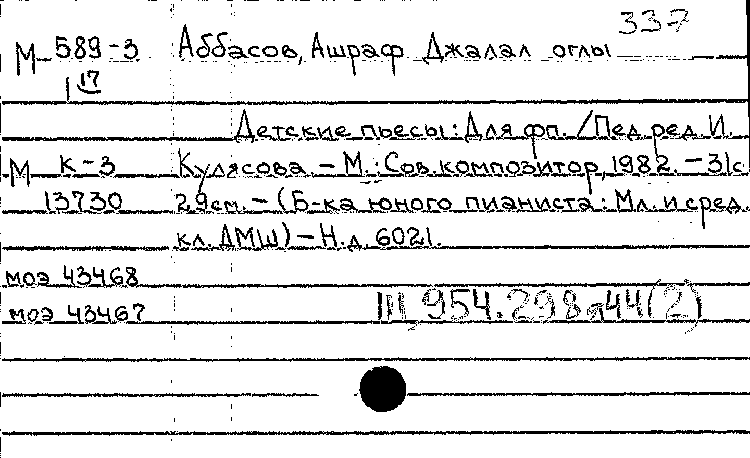 337
М 589-3 Аббасов, Ашраф Джалал оглы
I 17
Детские пьесы: Для фп. / Пед. ред. И.
М К-3 Кулясова. – М.: Сов. композитор, 1982. – 31 с.
13730 29 см. – (Б-ка юного пианиста: Мл. и сред.
кл. ДМШ) – Н.д. 6021.
моэ 43468
моэ 43467 Ш, 954.298я44(2)